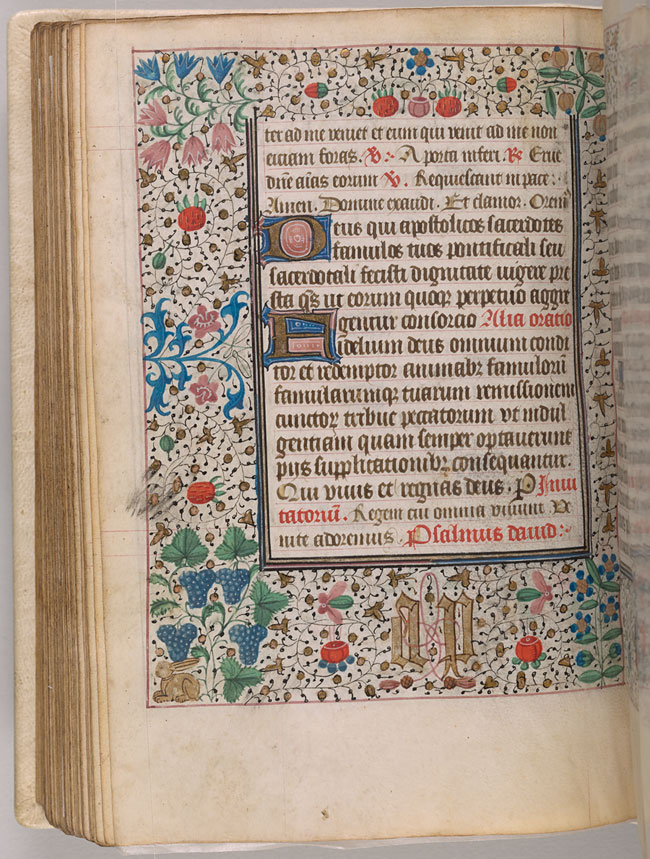 ter ad me veniet et eum qui venit ad me non
eiciam foras. V. A porta inferi. R Erue
dn̄e aīas eorum V. Requiescant in pace.
Amen. Domine exaudi. Et clamor. Orem̄
Deus qui apostolicos sacerdotes
famulos tuos pontificali seu
sacerdotali fecisti dignitate vigere pre
sta qs̄ ut eorum quoqꝫ perpetuo aggre
gentur consorcio Alia oratio
Fidelium deus omnium condi
tor et redemptor animabꝫ famulorū
famularumqꝫ tuarum remissionem
cunctoꝝ tribue peccatorum ut indul
gentiam quam semper optaverunt
pijs supplicationibꝫ consequantur.
Qui vivis et regnas deus. P Invi
tatoriū. Regem cui omnia vivunt Ve
nite adoremus. Psalmus david